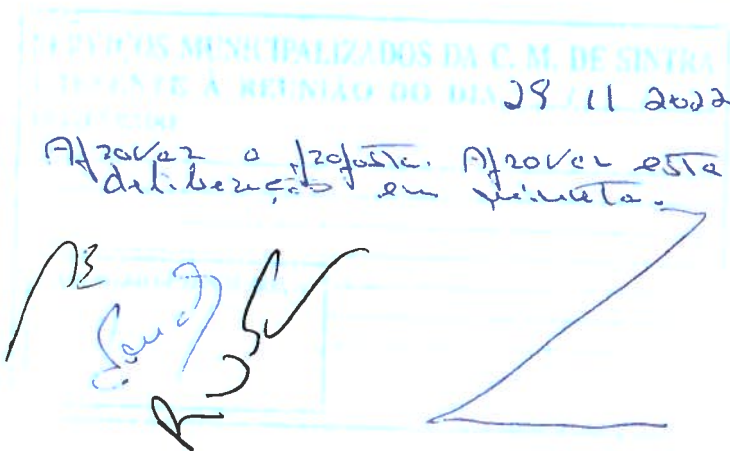 SERVIÇOS MUNICIPALIZADOS DA C. M. DE SINTRA
PRESENTE À REUNIÃO DO DIA 28 11 2022
Aprovar a proposta. Aprovar esta
deliberação em minuta.